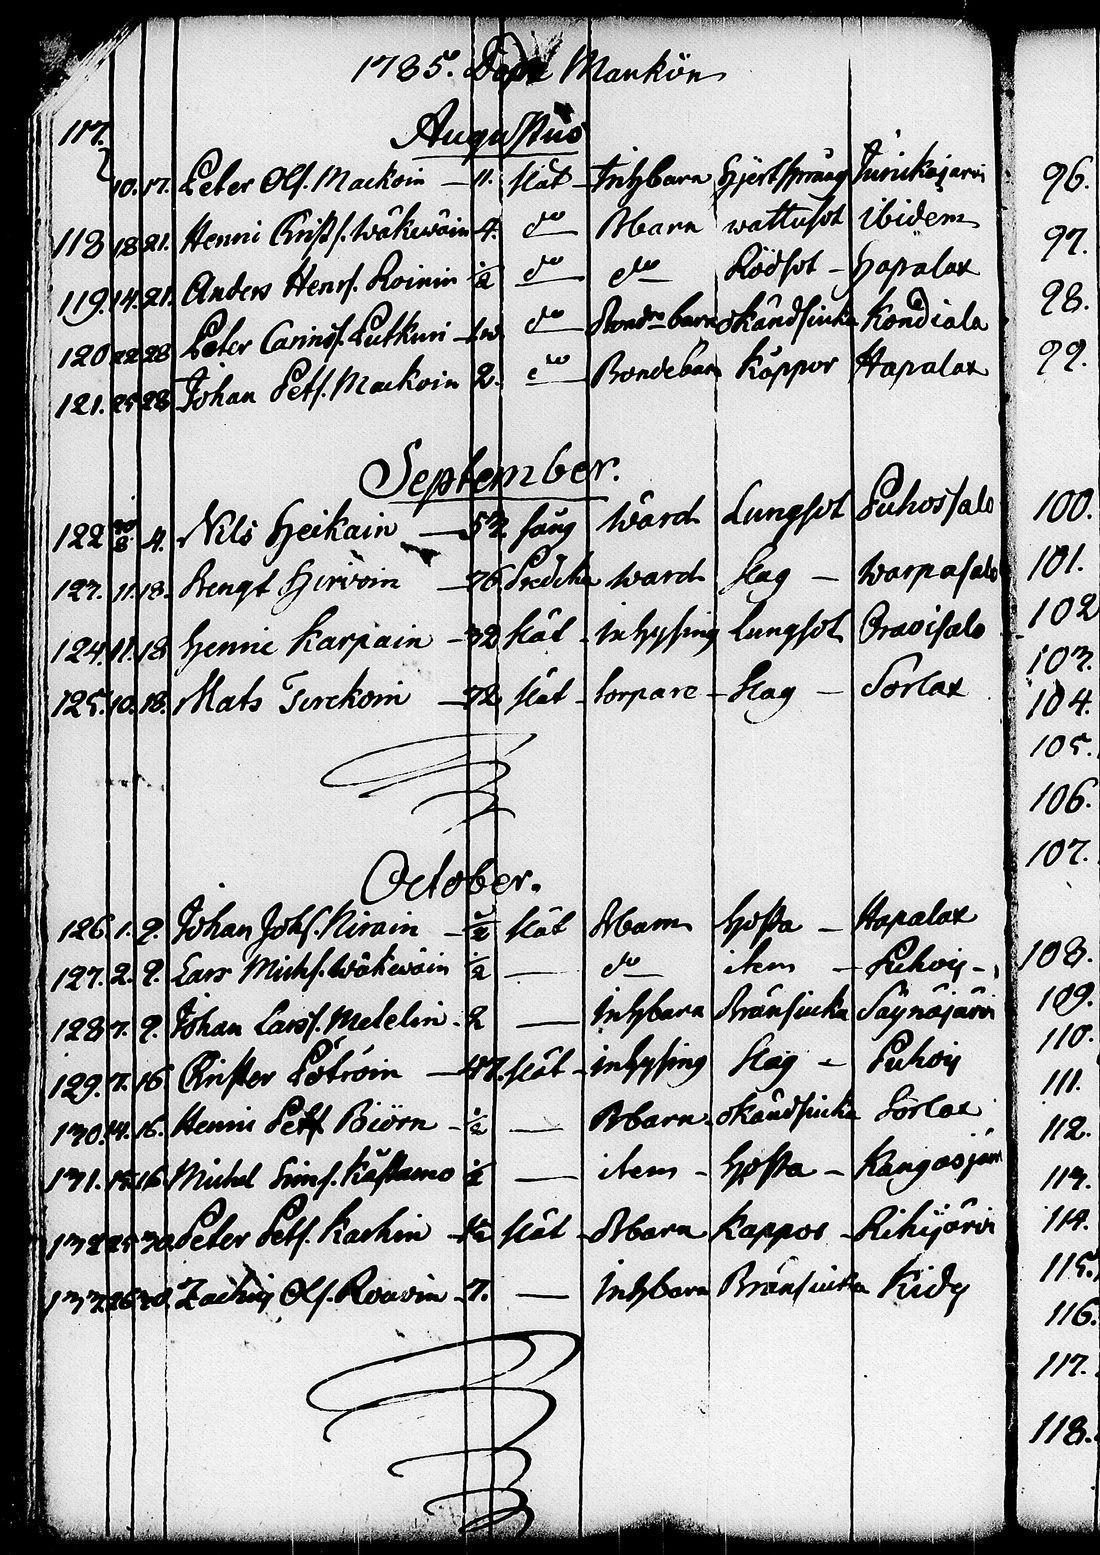 1785. Mankön
Augustus
117.
10. 17. Peter Olofs. Mackoin — 11. slät Inhbarn Hjertsprång Juurikajärvi
118 18 21. Henric Christs. Wäkewäin 4. do Bbarn wattusot ibidem
119. 14. 21. Anders Henrs. Roinin 1/2 do do Rödsot — Hapalax
120 22 28 Peter Carins. Lutkuin do Bonde barn Skändsiuka Kondiala
121. 25 28 Johan Pets. Mackoin 2. do Bondebarn Koppor Hapalax
September.
122 30/8 4. Nils Heikain — 52. wård Lungsot Puhossalo
123. 11. 18. Bengt Hirvoin — 76. wård slag — Warpasalo
124. 11. 18 Henric Karpain — 32 slät — Inhysing Lungsot Oravisalo
125. 10. 18. Mats Turckoin — 72. slät — torpare — slag — Sorlax
October.
126. 1. 9. Johan Johs. Hirain — 1/2 slät Bbarn Hosta — Hapalax
127. 2. 9. Lars Michs. Wäkewäin 1/2 — do item — Puhois
128 7. 9. Johan Larss. Melelin. 2 — Inhbarn Bränsiuka Säynäjärvi
129. 7. 16 Christer Pöiröin — 47. slät — inhysing slag — Puhois
130. 14. 16. Henric Pets Biörn — 1/2 — Bbarn. Skändsiuka Sorlax
131. 15 16. Michel Sims. Kästamo 1/2 — item — Hosta — Kangasjärvi
132 25 30. Peter Pets. Karhin — slät — Bbarn Koppor — Rihijärvi
133. 26 30. Zachris Ols. Roavin — 7. — Inhbarn Bränsiuka Kidy
96.
97.
98.
99.
100.
101.
102
103.
104.
105.
106.
107.
108.
109.
110.
111.
112.
113.
114.
115.
116.
117.
118.